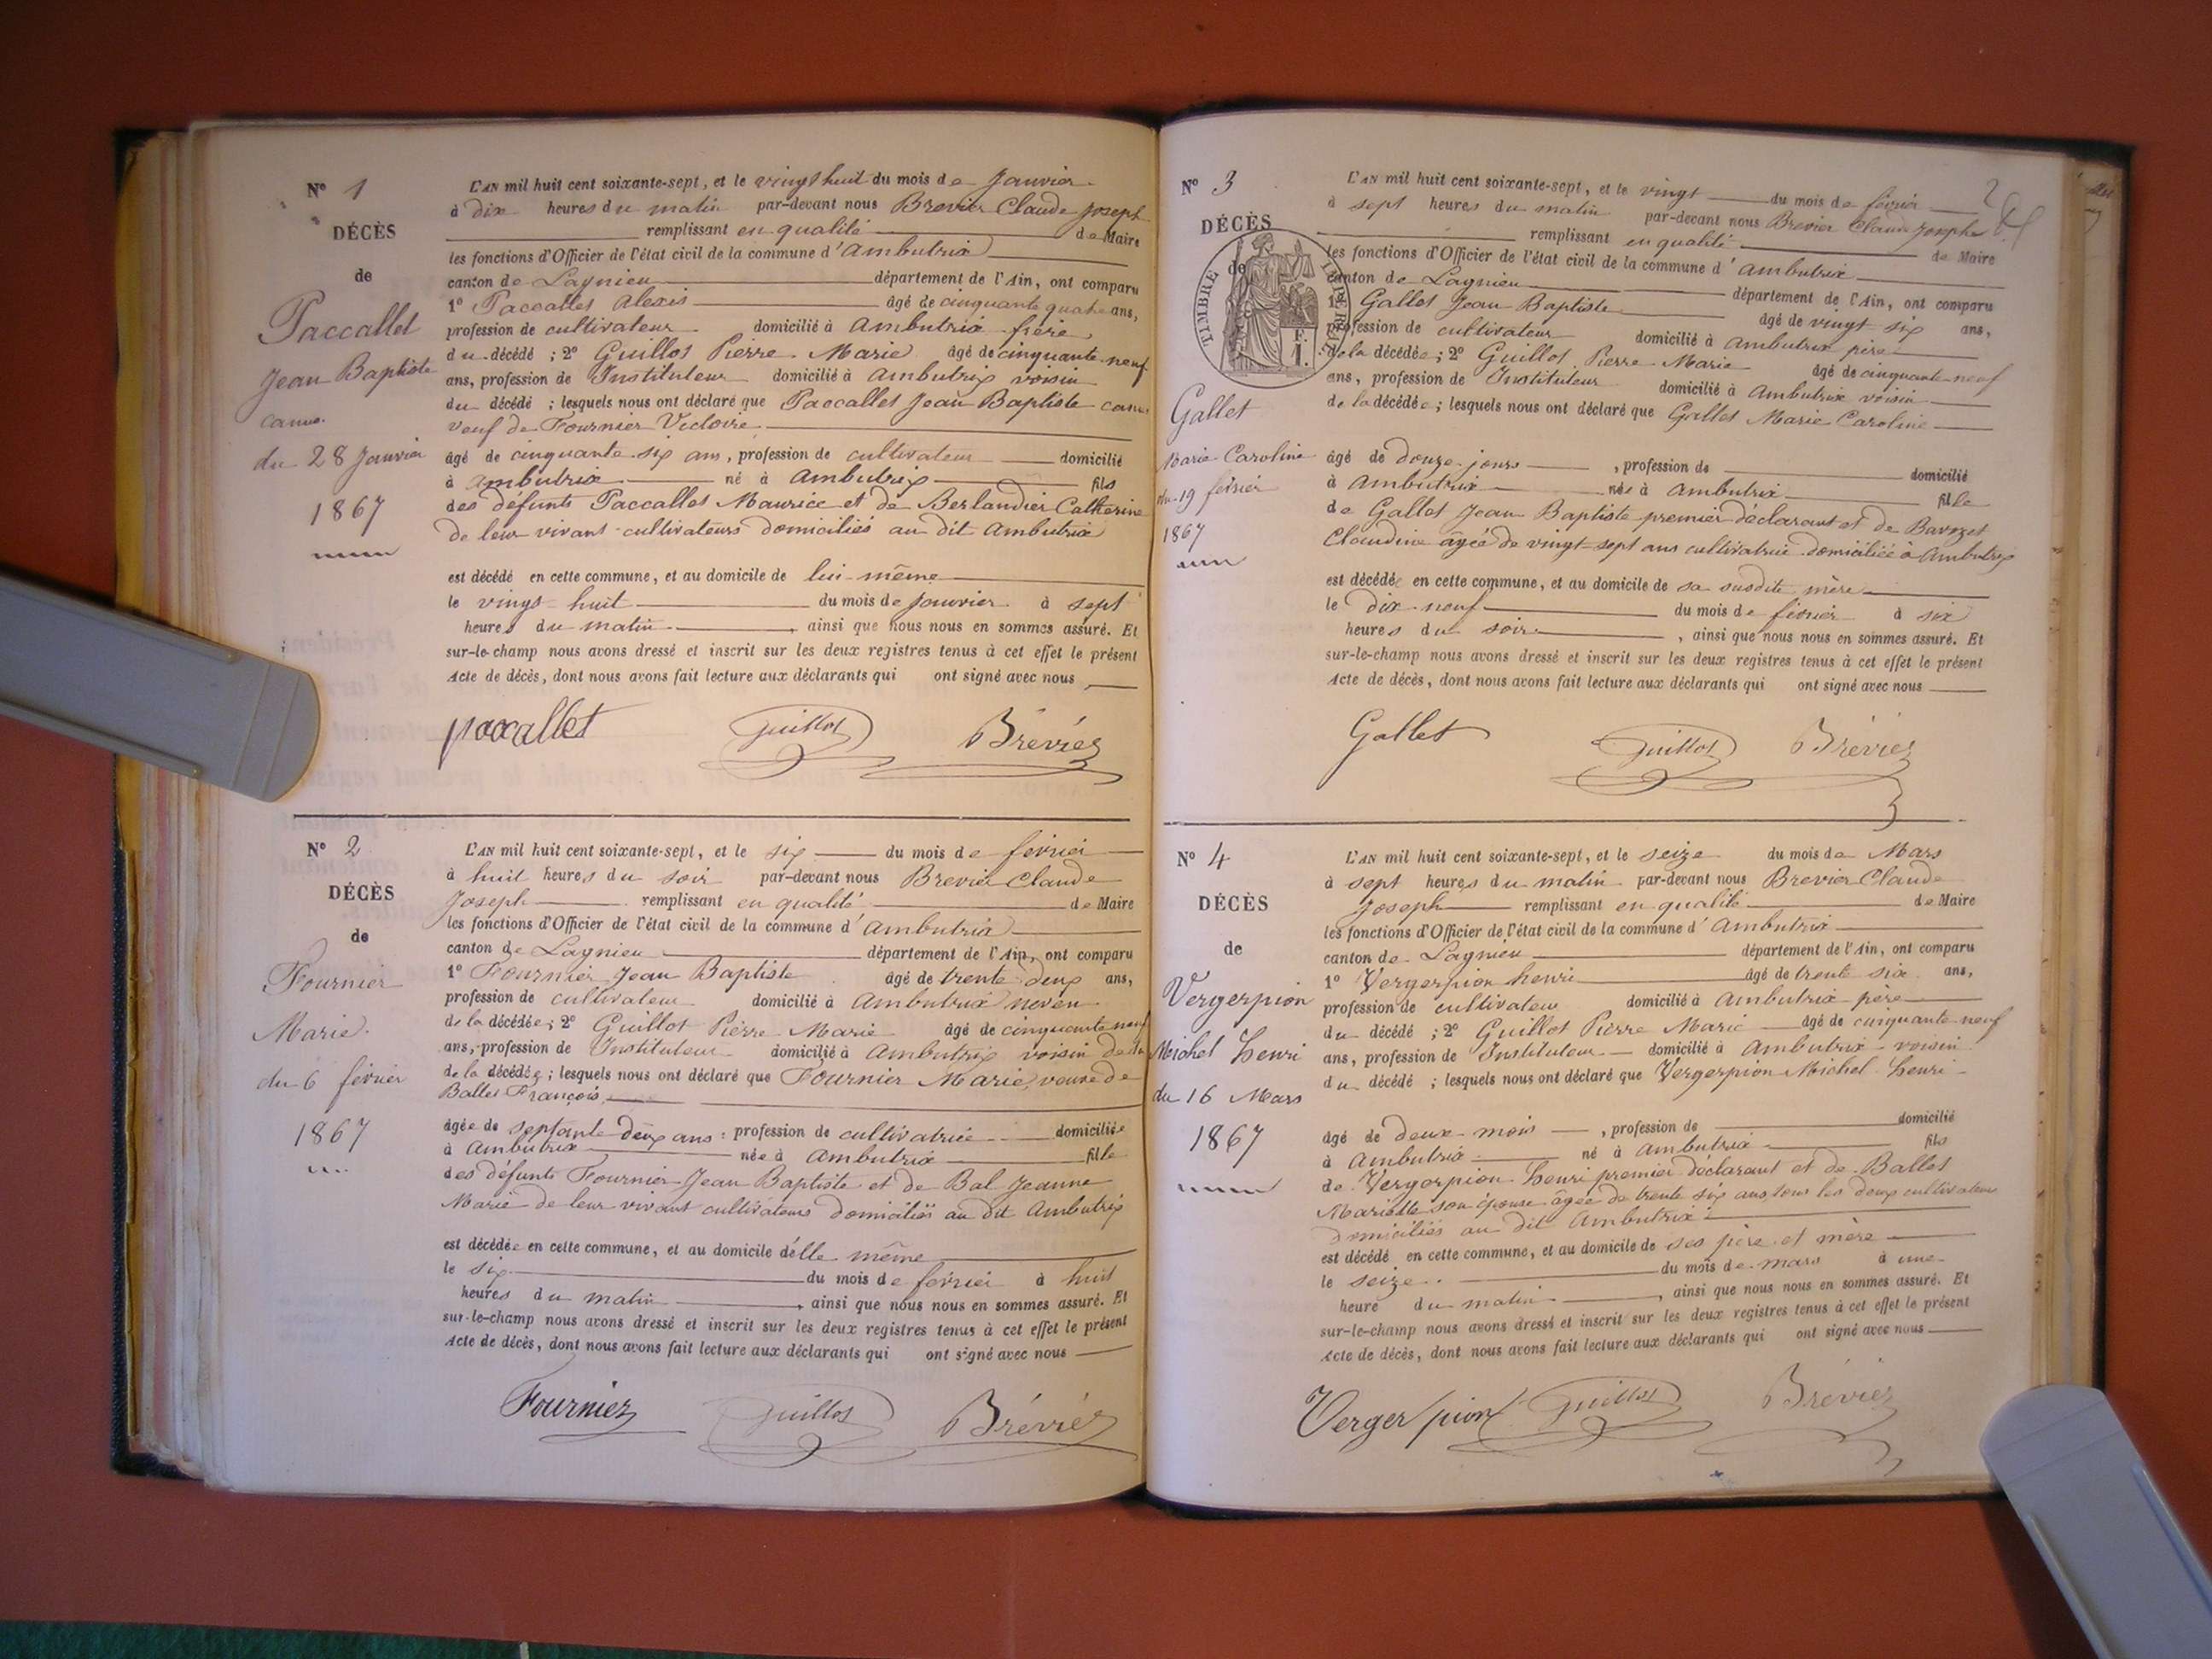 N° 1
DÉCÈS
de
Paccallet
Jean Baptiste
canus.
du 28 Janvier
1867
L'AN mil huit cent soixante-sept, et le vingt huit du mois de Janvier
à dix heures du matin par-devant nous Brevier Claude Joseph
remplissant en qualité de Maire
les fonctions d'Officier de l'état civil de la commune d'Ambutrix
canton de Lagnieu département de l'Ain, ont comparu
1° Paccallet Alexis âgé de cinquante quatre ans,
profession de cultivateur domicilié à Ambutrix frère
du décédé ; 2° Guillot Pierre Marie âgé de cinquante neuf
ans, profession de Instituteur domicilié à Ambutrix voisin
du décédé ; lesquels nous ont déclaré que Paccallet Jean Baptiste canus
veuf de Fournier Victoire
âgé de cinquante six ans, profession de cultivateur domicilié
à Ambutrix né à Ambutrix fils
des défunts Paccallet Maurice et de Berlandier Catherine
de leur vivant cultivateurs domiciliés au dit Ambutrix
est décédé en cette commune, et au domicile de lui-même
le vingt huit du mois de Janvier à sept
heures du matin, ainsi que nous nous en sommes assuré. Et
sur-le-champ nous avons dressé et inscrit sur les deux registres tenus à cet effet le présent
Acte de décès, dont nous avons fait lecture aux déclarants qui ont signé avec nous
paccallet Guillot Bréviez
N° 2
DÉCÈS
de
Fournier
Marie.
du 6 février
1867
L'AN mil huit cent soixante-sept, et le six du mois de février
à huit heures du soir par-devant nous Brevier Claude
Joseph remplissant en qualité de Maire
les fonctions d'Officier de l'état civil de la commune d'Ambutrix
canton de Lagnieu département de l'Ain, ont comparu
1° Fournier Jean Baptiste âgé de trente deux ans,
profession de cultivateur domicilié à Ambutrix neveu
de la décédée ; 2° Guillot Pierre Marie âgé de cinquante neuf
ans, profession de Instituteur domicilié à Ambutrix voisin de la
de la décédée ; lesquels nous ont déclaré que Fournier Marie, veuve de
Ballet François
âgée de septante deux ans : profession de cultivatrice domiciliée
à Ambutrix née à Ambutrix fille
des défunts Fournier Jean Baptiste et de Bal Jeanne
Marie de leur vivant cultivateurs domiciliés au dit Ambutrix
est décédée en cette commune, et au domicile d'elle même
le six du mois de février à huit
heures du matin, ainsi que nous nous en sommes assuré. Et
sur-le-champ nous avons dressé et inscrit sur les deux registres tenus à cet effet le présent
Acte de décès, dont nous avons fait lecture aux déclarants qui ont signé avec nous
Fournier Guillot Bréviez
N° 3
DÉCÈS
de
TIMBRE IMPÉRIAL
Gallet
Marie Caroline
du 19 février
1867
L'AN mil huit cent soixante-sept, et le vingt du mois de février
à sept heures du matin par-devant nous Brevier Claude Joseph
remplissant en qualité de Maire
les fonctions d'Officier de l'état civil de la commune d'Ambutrix
canton de Lagnieu département de l'Ain, ont comparu
1° Gallet Jean Baptiste âgé de vingt six ans,
profession de cultivateur domicilié à Ambutrix père
de la décédée ; 2° Guillot Pierre Marie âgé de cinquante neuf
ans, profession de Instituteur domicilié à Ambutrix voisin
de la décédée ; lesquels nous ont déclaré que Gallet Marie Caroline
âgé de douze jours, profession de domicilié
à Ambutrix née à Ambutrix fille
de Gallet Jean Baptiste premier déclarant et de Barozet
Claudine âgée de vingt-sept ans cultivatrice domiciliée à Ambutrix
est décédée en cette commune, et au domicile de sa susdite mère
le dix-neuf du mois de février à six
heures du soir, ainsi que nous nous en sommes assuré. Et
sur-le-champ nous avons dressé et inscrit sur les deux registres tenus à cet effet le présent
Acte de décès, dont nous avons fait lecture aux déclarants qui ont signé avec nous
Gallet Guillot Bréviez
N° 4
DÉCÈS
de
Vergerpion
Michel henri
du 16 Mars
1867
L'AN mil huit cent soixante-sept, et le seize du mois de Mars
à sept heures du matin par-devant nous Brevier Claude
Joseph remplissant en qualité de Maire
les fonctions d'Officier de l'état civil de la commune d'Ambutrix
canton de Lagnieu département de l'Ain, ont comparu
1° Vergerpion henri âgé de trente six ans,
profession de cultivateur domicilié à Ambutrix père
du décédé ; 2° Guillot Pierre Marie âgé de cinquante neuf
ans, profession de Instituteur domicilié à Ambutrix voisin
du décédé ; lesquels nous ont déclaré que Vergerpion Michel henri
âgé de deux mois, profession de domicilié
à Ambutrix né à Ambutrix fils
de Vergerpion henri premier déclarant et de Ballet
Mariette son épouse âgée de trente six ans tous les deux cultivateurs
domiciliés au dit Ambutrix
est décédé en cette commune, et au domicile de ses père et mère
le seize du mois de mars à une
heure du matin, ainsi que nous nous en sommes assuré. Et
sur-le-champ nous avons dressé et inscrit sur les deux registres tenus à cet effet le présent
Acte de décès, dont nous avons fait lecture aux déclarants qui ont signé avec nous
Vergerpion Guillot Bréviez